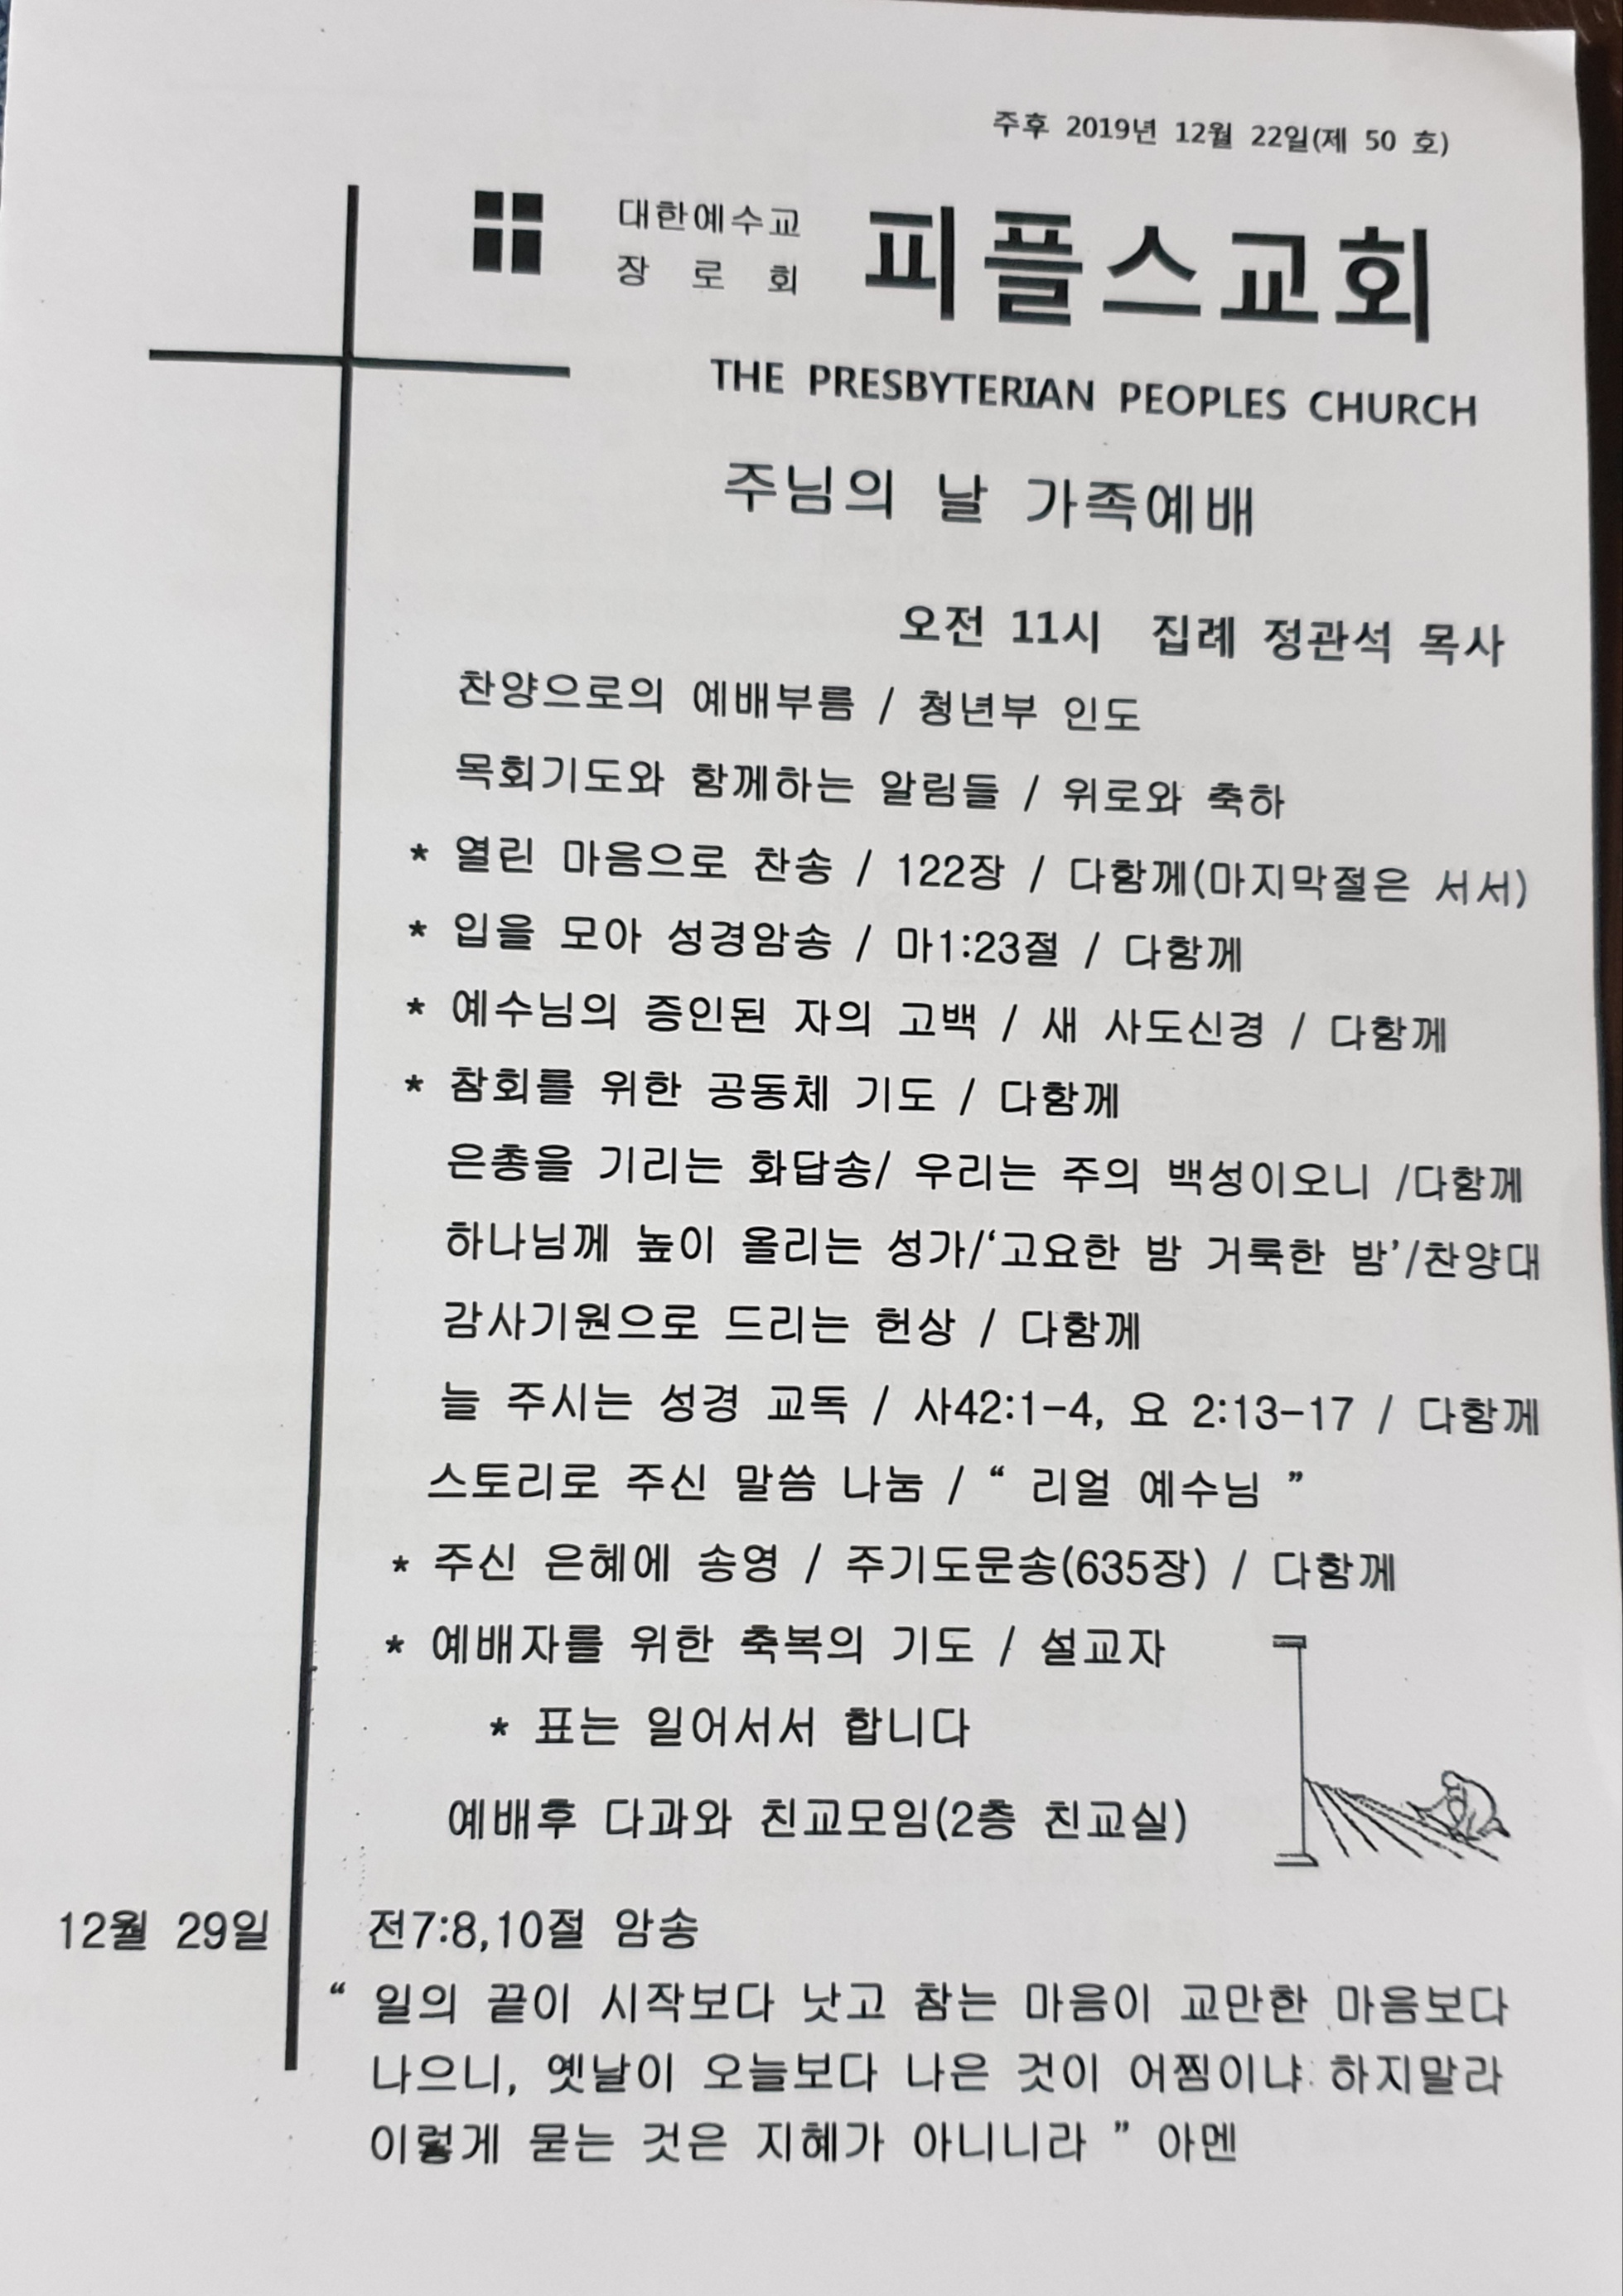 주후 2019년 12월 22일(제 50 호)
대한예수교
장 로 회
피플스교회
THE PRESBYTERIAN PEOPLES CHURCH
주님의 날 가족예배
오전 11시 집례 정관석 목사
찬양으로의 예배부름 / 청년부 인도
목회기도와 함께하는 알림들 / 위로와 축하
* 열린 마음으로 찬송 / 122장 / 다함께(마지막절은 서서)
* 입을 모아 성경암송 / 마1:23절 / 다함께
* 예수님의 증인된 자의 고백 / 새 사도신경 / 다함께
* 참회를 위한 공동체 기도 / 다함께
은총을 기리는 화답송/ 우리는 주의 백성이오니 /다함께
하나님께 높이 올리는 성가/‘고요한 밤 거룩한 밤’/찬양대
감사기원으로 드리는 헌상 / 다함께
늘 주시는 성경 교독 / 사42:1-4, 요 2:13-17 / 다함께
스토리로 주신 말씀 나눔 / “ 리얼 예수님 ”
* 주신 은혜에 송영 / 주기도문송(635장) / 다함께
* 예배자를 위한 축복의 기도 / 설교자
* 표는 일어서서 합니다
예배후 다과와 친교모임(2층 친교실)
12월 29일 전7:8,10절 암송
“ 일의 끝이 시작보다 낫고 참는 마음이 교만한 마음보다
나으니, 옛날이 오늘보다 나은 것이 어찜이냐 하지말라
이렇게 묻는 것은 지혜가 아니니라 ” 아멘